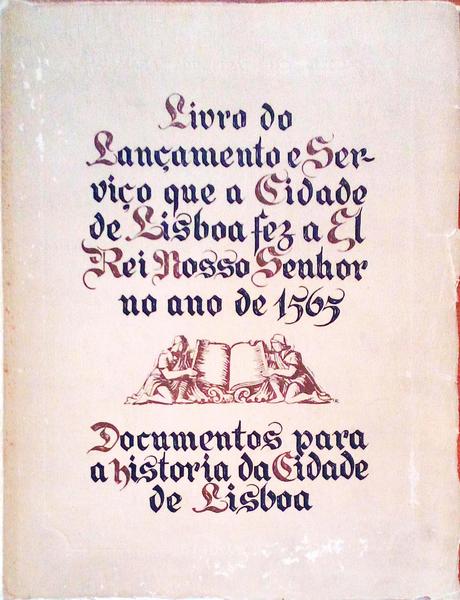 Livro do
Lançamento e Ser-
viço que a Cidade
de Lisboa fez a El
Rei Nosso Senhor
no ano de 1565
Documentos para
a historia da Cidade
de Lisboa